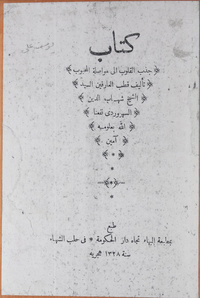 كتاب
﴿ جذب القلوب الى مواصلة المحبوب ﴾
﴿ تأليف قطب العارفين السيد ﴾
﴿ الشيخ شهاب الدين ﴾
﴿ السهروردي نفعنا ﴾
﴿ الله بعلومه ﴾
﴿ آمين ﴾
طبع
بمطبعة البهاء تجاه دار الحكومة * فى حلب الشهباء
سنة ١٣٢٨ هجرية